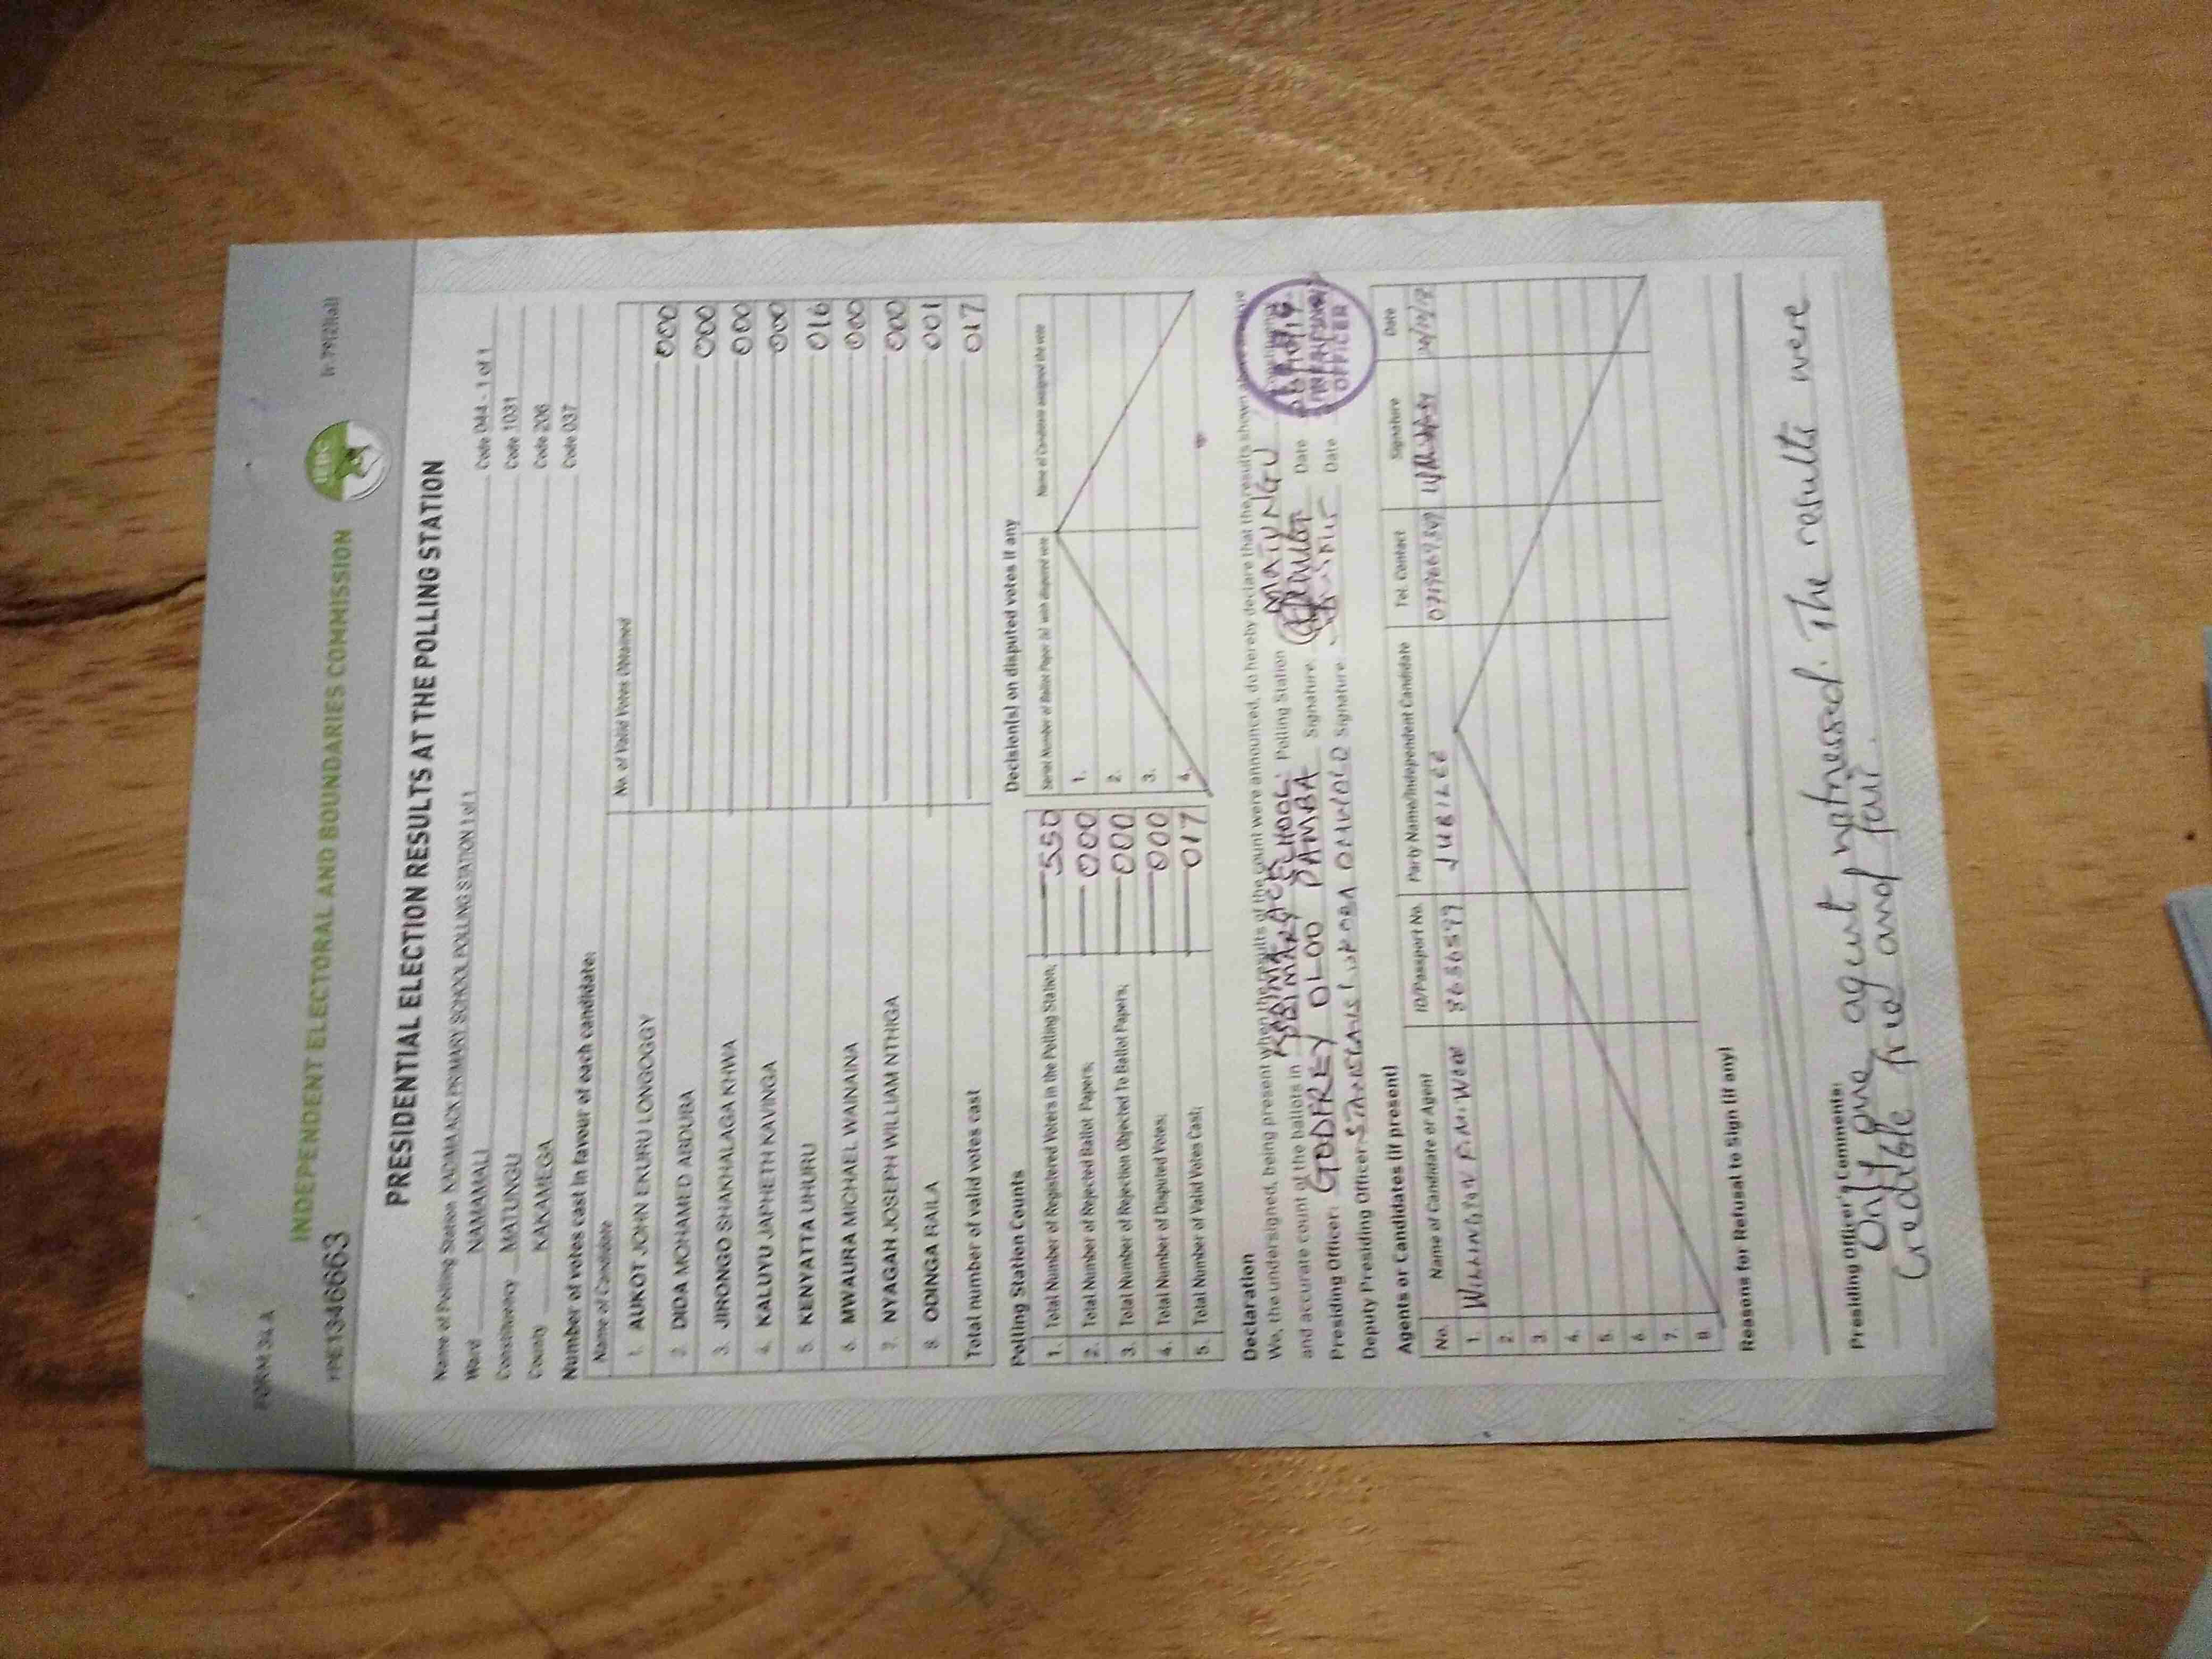 FORM 34 A
r. 79(2)(a)
INDEPENDENT ELECTORAL AND BOUNDARIES COMMISSION
IEBC
PE1346663
PRESIDENTIAL ELECTION RESULTS AT THE POLLING STATION
Name of Polling Station KADIMA ACK PRIMARY SCHOOL POLLING STATION 1 of 1 Code 044 - 1 of 1
Ward NAMAMALI Code 1031
Constituency MATUNGU Code 206
County KAKAMEGA Code 037
Number of votes cast in favour of each candidate:
Name of Candidate No. of Valid Votes Obtained
1. AUKOT JOHN EKURU LONGOGGY 000
2. DIDA MOHAMED ABDUBA 000
3. JIRONGO SHAKHALAGA KHWA 000
4. KALUYU JAPHETH KAVINGA 000
5. KENYATTA UHURU 016
6. MWAURA MICHAEL WAINAINA 000
7. NYAGAH JOSEPH WILLIAM NTHIGA 000
8. ODINGA RAILA 001
Total number of valid votes cast 017
Polling Station Counts
1. Total Number of Registered Voters in the Polling Station; 550
2. Total Number of Rejected Ballot Papers; 000
3. Total Number of Rejection Objected To Ballot Papers; 000
4. Total Number of Disputed Votes; 000
5. Total Number of Valid Votes Cast; 017
Decision(s) on disputed votes if any
Serial Number of Ballot Paper (s) with disputed vote Name of Candidate assigned the vote
1.
2.
3.
4.
Declaration
We, the undersigned, being present when the results of the count were announced, do hereby declare that the results shown above are true
and accurate count of the ballots in KADIMA ACK PRIMARY SCHOOL Polling Station MATUNGU
Presiding Officer: GODFREY OLOO DAMBA Signature Date
Deputy Presiding Officer: Signature Date
OFFICER
Agents or Candidates (if present)
No. Name of Candidate or Agent ID/Passport No. Party Name/Independent Candidate Tel. Contact Signature Date
1. JUBILEE
2.
3.
4.
5.
6.
7.
8.
Reasons for Refusal to Sign (if any)
Presiding Officer's Comments:
Only one agent witnessed. The results were
Credible free and fair.